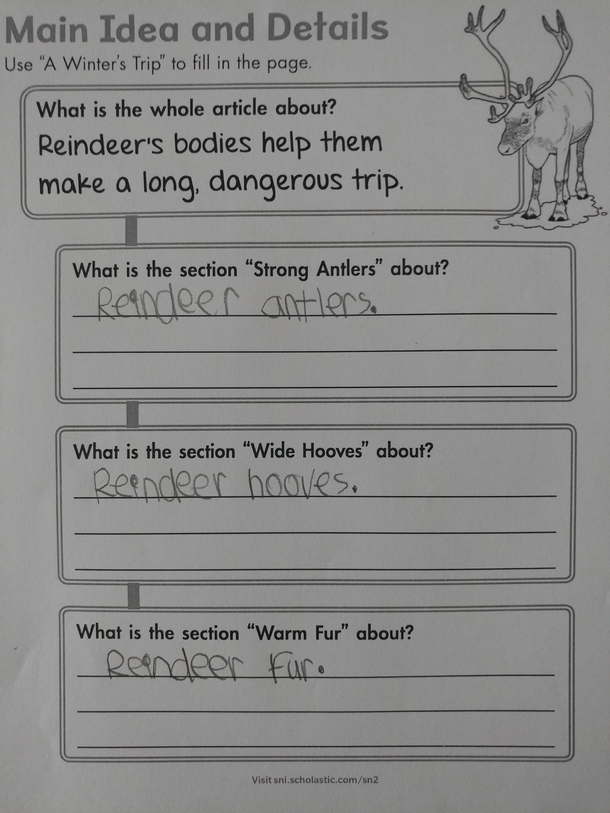 Main Idea and Details
Use “A Winter's Trip” to fill in the page.
What is the whole article about?
Reindeer's bodies help them
make a long, dangerous trip.
What is the section “Strong Antlers” about?
Reindeer antlers.
What is the section “Wide Hooves” about?
Reindeer hooves.
What is the section “Warm Fur” about?
Reindeer fur.
Visit sni.scholastic.com/sn2